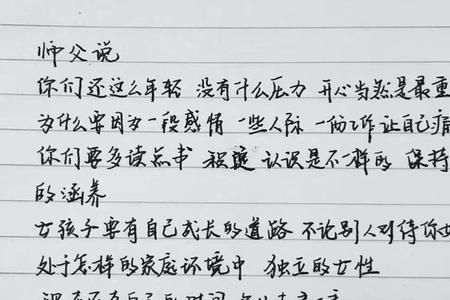 师父说
你们还这么年轻 没有什么压力 开心当然是最重
为什么要因为一段感情 一些人际 一份工作让自己痛
你们要多读点书 积 认识是不一样的 保持
的涵养
女孩子要有自己成长的道路 不论别人对待你
处于怎样的家庭环境中 独立的女性